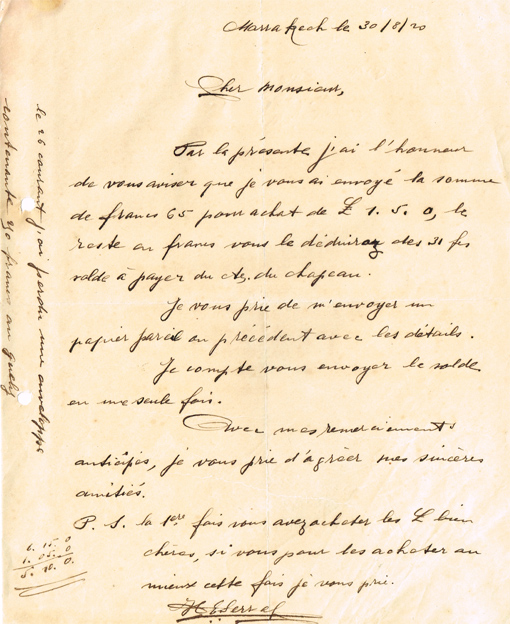 Marrakech le 30/8/20
Cher Monsieur,
Par la présente j'ai l'honneur
de vous aviser que je vous ai envoyé la somme
de francs 65 pour achat de £ 1. 5. 0, le
reste en francs vous le déduirez des 31 fcs
solde à payer du du chapeau.
Je vous prie de m'envoyer un
papier pareil au précédent avec les détails.
Je compte vous envoyer le solde
en une seule fois.
Avec mes remerciements
anticipés, je vous prie d'agréer mes sincères
amitiés.
P. S. la 1ère fois vous avez acheter les £ bien
chères, si vous pour les acheter au
mieux cette fois je vous prie.
le 26 courant j'ai perdu une enveloppe
contenante francs au
6. 15. 0
1. 05. 0
5. 10. 0.